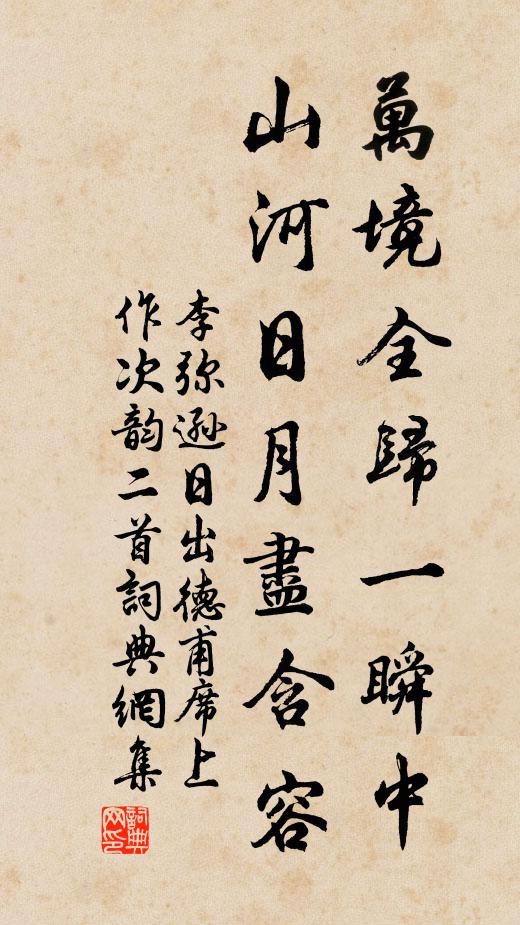 萬境全歸一瞬中
山河日月盡含容
李弥遜日出德甫席上
作次韵二首詞典網集
詞典网印